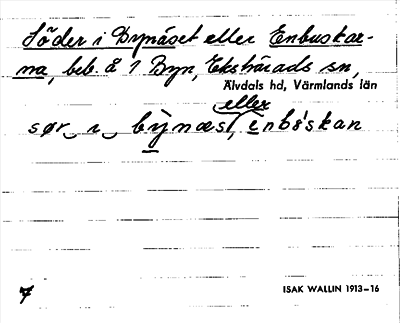 Söder i Bynäset eller Enbuskar-
na, beb. å 1 Byn, Ekshärads sn,
Älvdals hd, Värmlands län
eller
sør i by̲næst, enbøskan
7
ISAK WALLIN 1913–16